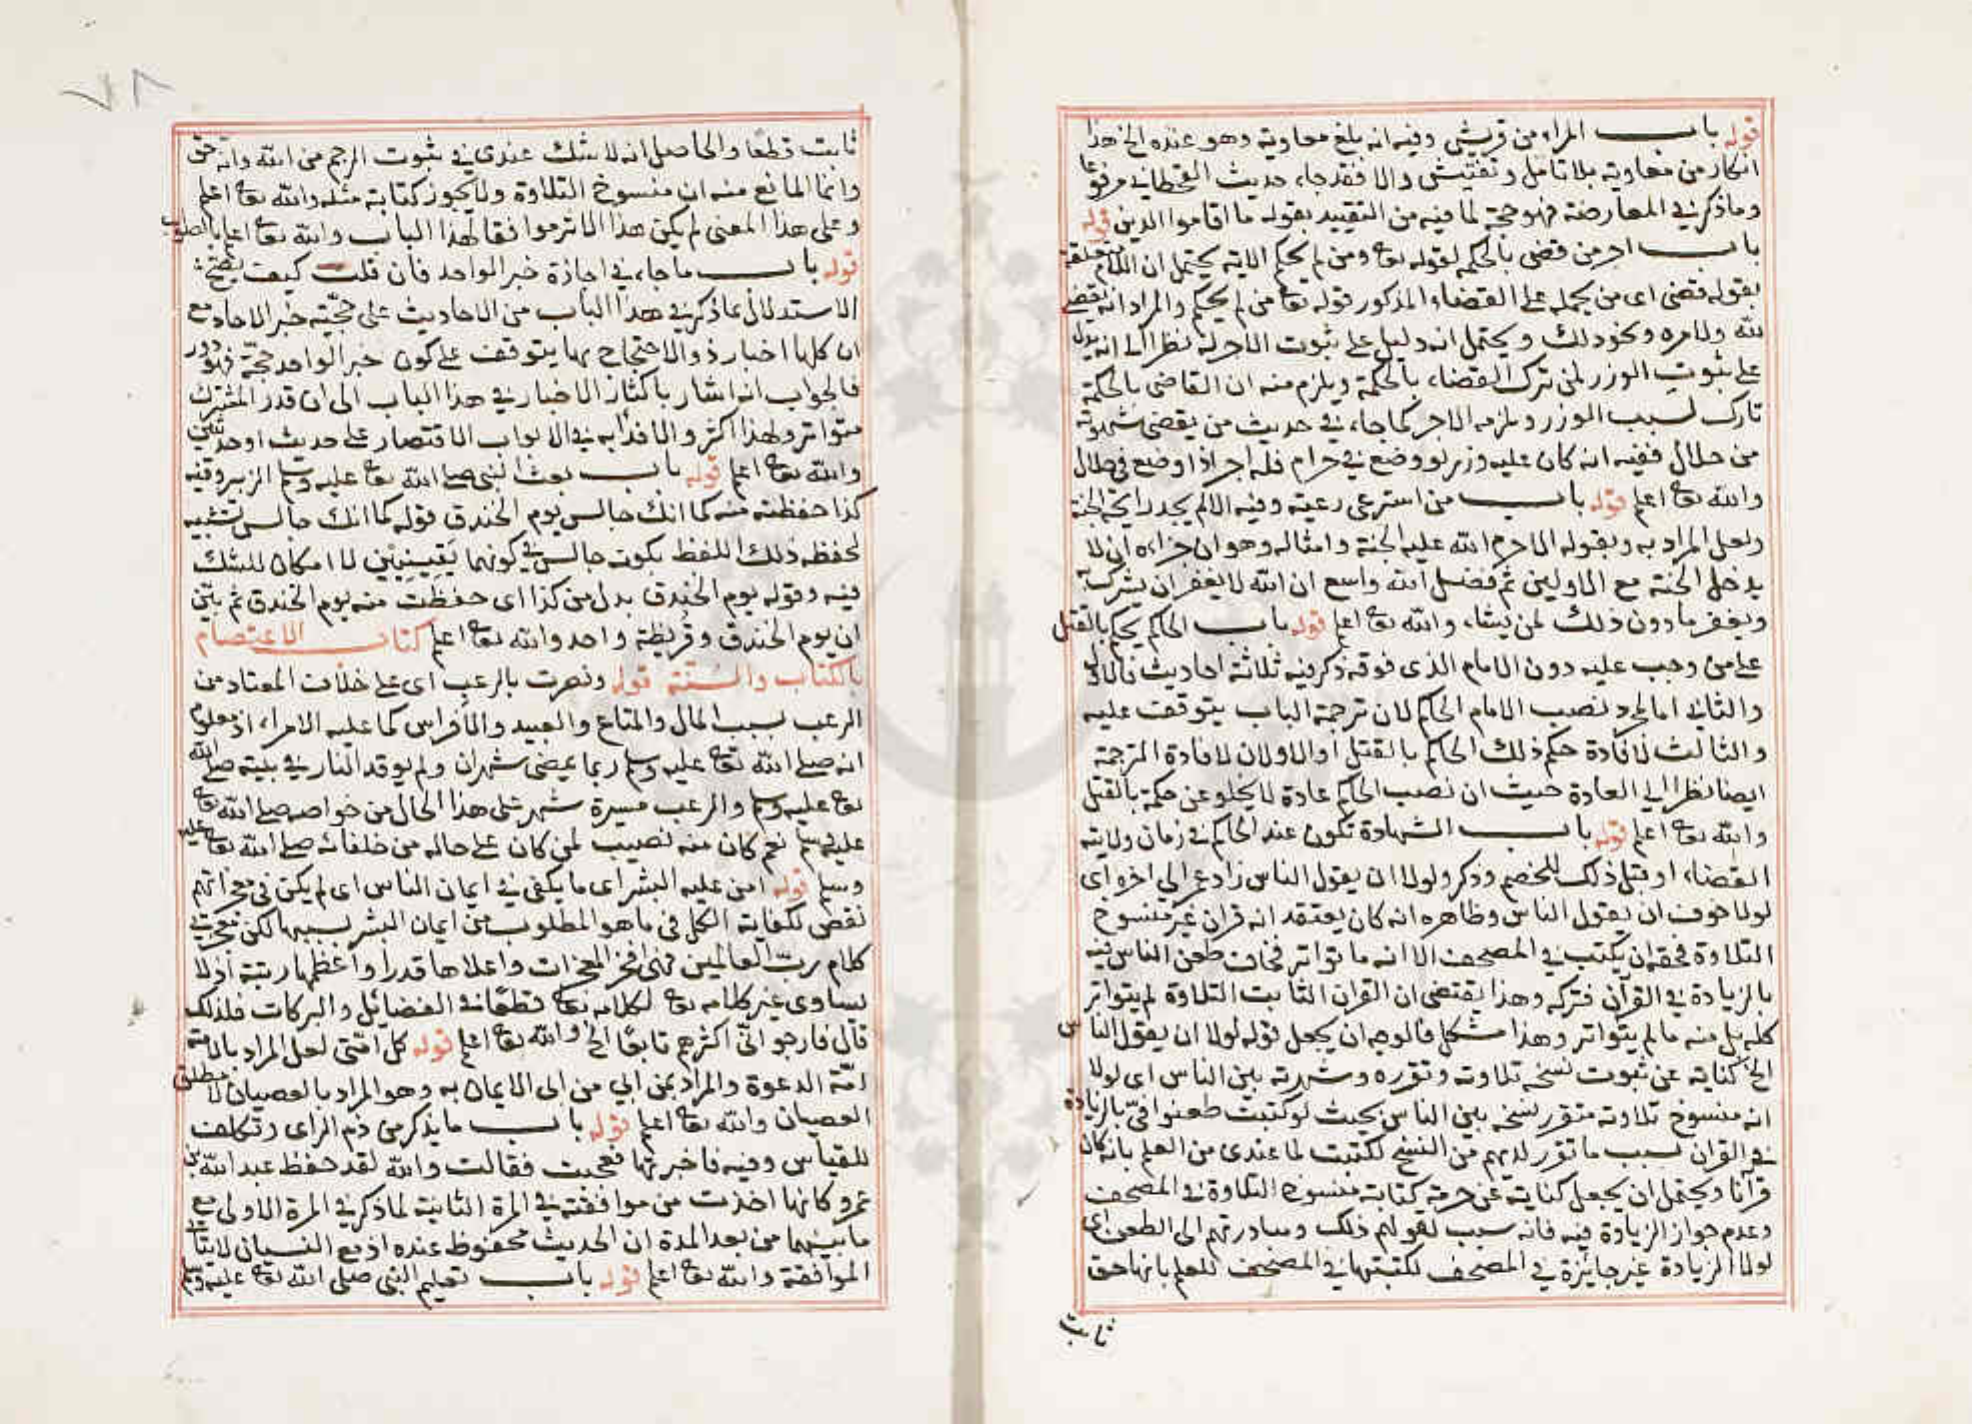 قوله باب الامراء من قريش وفيه انه بلغ معاوية وهو عنده الخ هذا
انكار من معاوية بلا تامل وتفتيش والا فقد جاء حديث القحطاني مرفوعا
وما ذكر في المعارضة فهو حجة لما فيه من التقييد بقوله ما اقاموا الدين قوله
باب اجر من قضى بالحكمة لقوله تع ومن لم يحكم الاية يحتمل ان اللام متعلقة
بقوله قضى اى من يحمله على القضاء المذكور قوله تع من لم يحكم والمراد انه يقضي
لله ولامره ونحو ذلك ويحتمل انه دليل على ثبوت الاجر له نظرا الى انه يدل
على ثبوت الوزر لمن ترك القضاء بالحكمة ويلزم منه ان القاضى بالحكمة
تارك لسبب الوزر ويلزمه الاجر كما جاء في حديث من يقضى شهوته
من حلال ففيه انه كان عليه وزر لو وضع في حرام فله اجر اذا وضع في حلال
والله تع اعلم قوله باب من استرعى رعية وفيه الا لم يجد رايحة الجنة
ولعل المراد به وبقوله الا حرم الله عليه الجنة وامثاله وهو ان جزاءه ان لا
يدخل الجنة مع الاولين ثم فضل الله واسع ان الله لا يغفر ان يشرك به
ويغفر ما دون ذلك لمن يشاء والله تع اعلم قوله باب الحاكم يحكم بالقتل
على من وجب عليه دون الامام الذى فوقه وذكر فيه ثلاثة احاديث فالاول
والثاني اما لمجرد نصب الامام الحاكم لان ترجمة الباب يتوقف عليه
والثالث لافادة حكم ذلك الحاكم بالقتل او الاولان لافادة الترجمة
ايضا نظرا الى العادة حيث ان نصب الحاكم عادة لا يخلو عن حكمه بالقتل
والله تع اعلم قوله باب الشهادة تكون عند الحاكم في زمان ولايته
القضاء او قبل ذلك للخصم وذكر ولولا ان يقول الناس زاد عمر الى اخره اى
لولا خوف ان يقول الناس وظاهره انه كان يعتقد انه قران غير منسوخ
التلاوة فحقه ان يكتب في المصحف الا انه ما تواتر فخاف طعن الناس فيه
بالزيادة في القرآن فتركه وهذا يقتضى ان القران الثابت التلاوة لم يتواتر
كله بل منه ما لم يتواتر وهذا مشكل فالوجه ان يجعل قوله لولا ان يقول الناس
الخ كناية عن ثبوت نسخ تلاوته وتقرره وشهرته بين الناس اى لولا
انه منسوخ تلاوته متقرر نسخه بين الناس بحيث لو كتبت طعنوا فيّ بالزيادة
في القران لسبب ما تقرر لديهم من النسخ لكتبت لما عندى من العلم بانه كان
قرآنا ويحتمل ان يجعل كناية عن حرمة كتابة منسوخ التلاوة في المصحف
وعدم جواز الزيادة فيه فانه سبب لقولهم ذلك ومبادرتهم الى الطعن اى
لولا الزيادة غير جائزة في المصحف لكتبتها في المصحف للعلم بانها حق
ثابت
٧٨
ثابت قطعا والحاصل انه لا شك عندى في ثبوت الرجم من الله وانه حق
وانما المانع منه ان منسوخ التلاوة ولا يجوز كتابة مثله والله تع اعلم
وعلى هذا المعنى لم يكن هذا الاثر موافقا لهذا الباب والله تع اعلم بالصواب
قوله باب ما جاء في اجازة خبر الواحد فان قلت كيف يصح
الاستدلال بما ذكر في هذا الباب من الاحاديث على حجّية خبر الاحاد مع
ان كلها اخبار ذ والاحتجاج بها يتوقف على كون خبر الواحد حجّة فهو دور
فالجواب انه اشار باكثار الاخبار في هذا الباب الى ان قدر المشترك
متواتر ولهذا اكثر والا فدأبه في الابواب الاقتصار على حديث او حديثين
والله تع اعلم قوله باب بعث النبى صلى الله تع عليه وسلم الزبير وفيه
كذا حفظته منه كما انك جالس يوم الخندق قوله كما انك جالس تشبيه
لحفظه ذلك اللفظ بكونه جالس في كونهما يَقِينِيَّيْن لا امكان للشك
فيه وقوله يوم الخندق بدل من كذا اى حفظت منه يوم الخندق ثم بيّن
ان يوم الخندق وقريظة واحد والله تع اعلم كتاب الاعتصام
بالكتاب والسنة قوله ونصرت بالرعب اى على خلاف المعتاد من
الرعب لسبب المال والمتاع والعبيد والافراس كما عليه الامراء اذ معلوم
انه صلى الله تع عليه وسلم ربما يمضى شهران ولم يوقد النار في بيته صلى الله
تع عليه وسلم والرعب مسيرة شهر على هذا الحال من خواصه صلى الله تع
عليه وسلم نعم كان منه نصيب لمن كان على حاله من خلفائه صلى الله تع عليه
وسلم قوله امن عليه البشر اى ما يكفى في ايمان الناس اى لم يكن في معجزاتهم
نقص لكفاية الكل في ما هو المطلوب من ايمان البشر بسببها لكن معجزتى
كلام ربّ العالمين فهى فخر المعجزات واعلاها قدرا واعظمها رتبة اذ لا
يساوى غير كلامه تع لكلامه تع قطعا في الفضائل والبركات فلذلك
قال فارجو انّى اكثرهم تابعًا الخ والله تع اعلم قوله كل امّتى لعل المراد بالامة
امّة الدعوة والمراد بمن ابي من ابى الايمان به وهو المراد بالعصيان لا مطلق
العصيان والله تع اعلم قوله باب ما يذكر من ذم الراى وتكلف
للقياس وفيه فاخبرتها فعجبت فقالت والله لقد حفظ عبد الله بن
عمرو كانها اخذت من موافقته في المرة الثانية لما ذكر في المرة الاولى مع
ما بينهما من بعد المدة ان الحديث محفوظ عنده اذ مع النسيان لا يتأتى
الموافقة والله تع اعلم قوله باب تعليم النبى صلى الله تع عليه وسلم